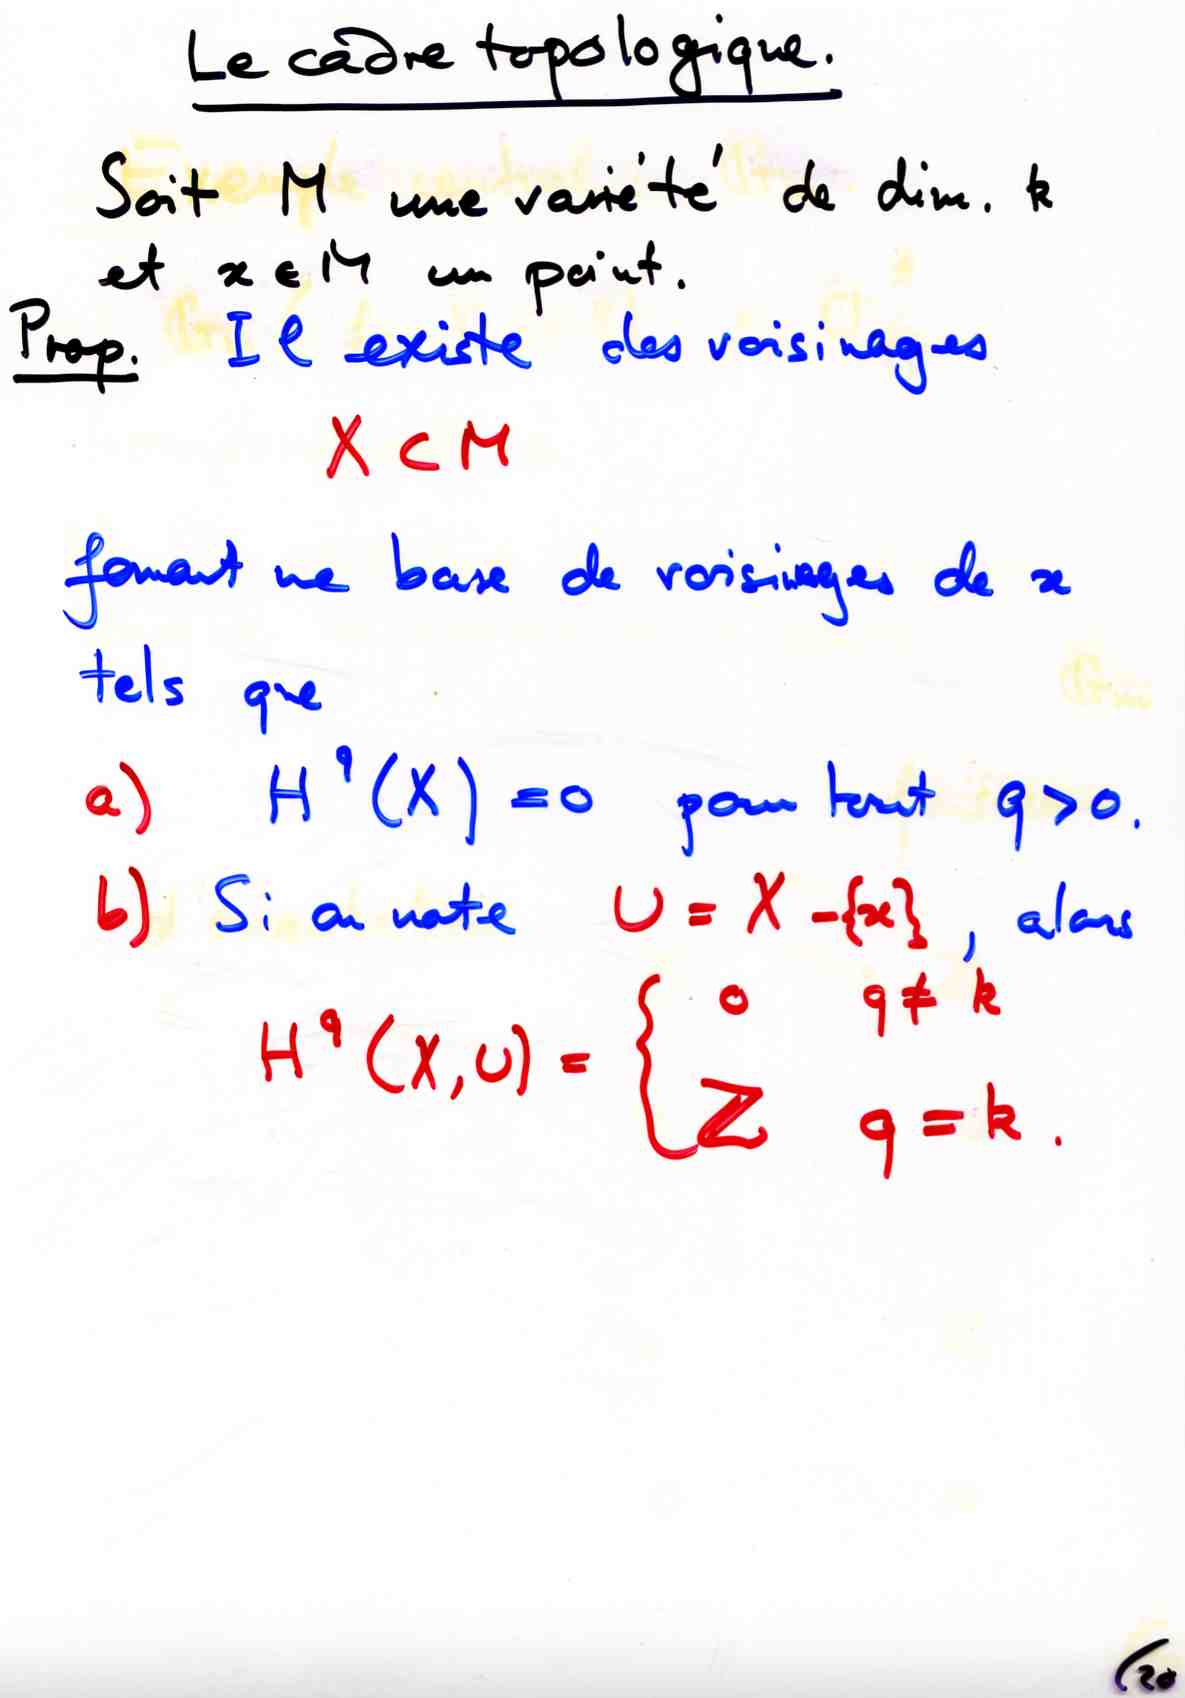 Le cadre topologique.
Soit M une variété de dim. k
et x ∈ M un point.
Prop. Il existe des voisinages
X ⊂ M
formant une base de voisinages de x
tels que
a) H^q(X) = 0 pour tout q > 0.
b) Si on note U = X - {x}, alors
H^q(X, U) = { 0 q ≠ k
Z q = k.
(20